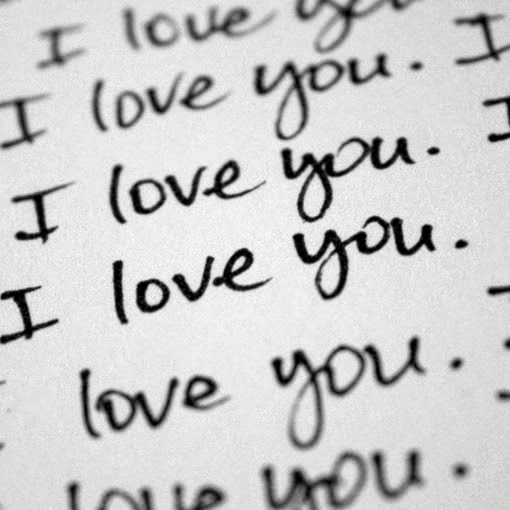 I love you
I love you. I
I love you. I
I love you.
love you.
love you.